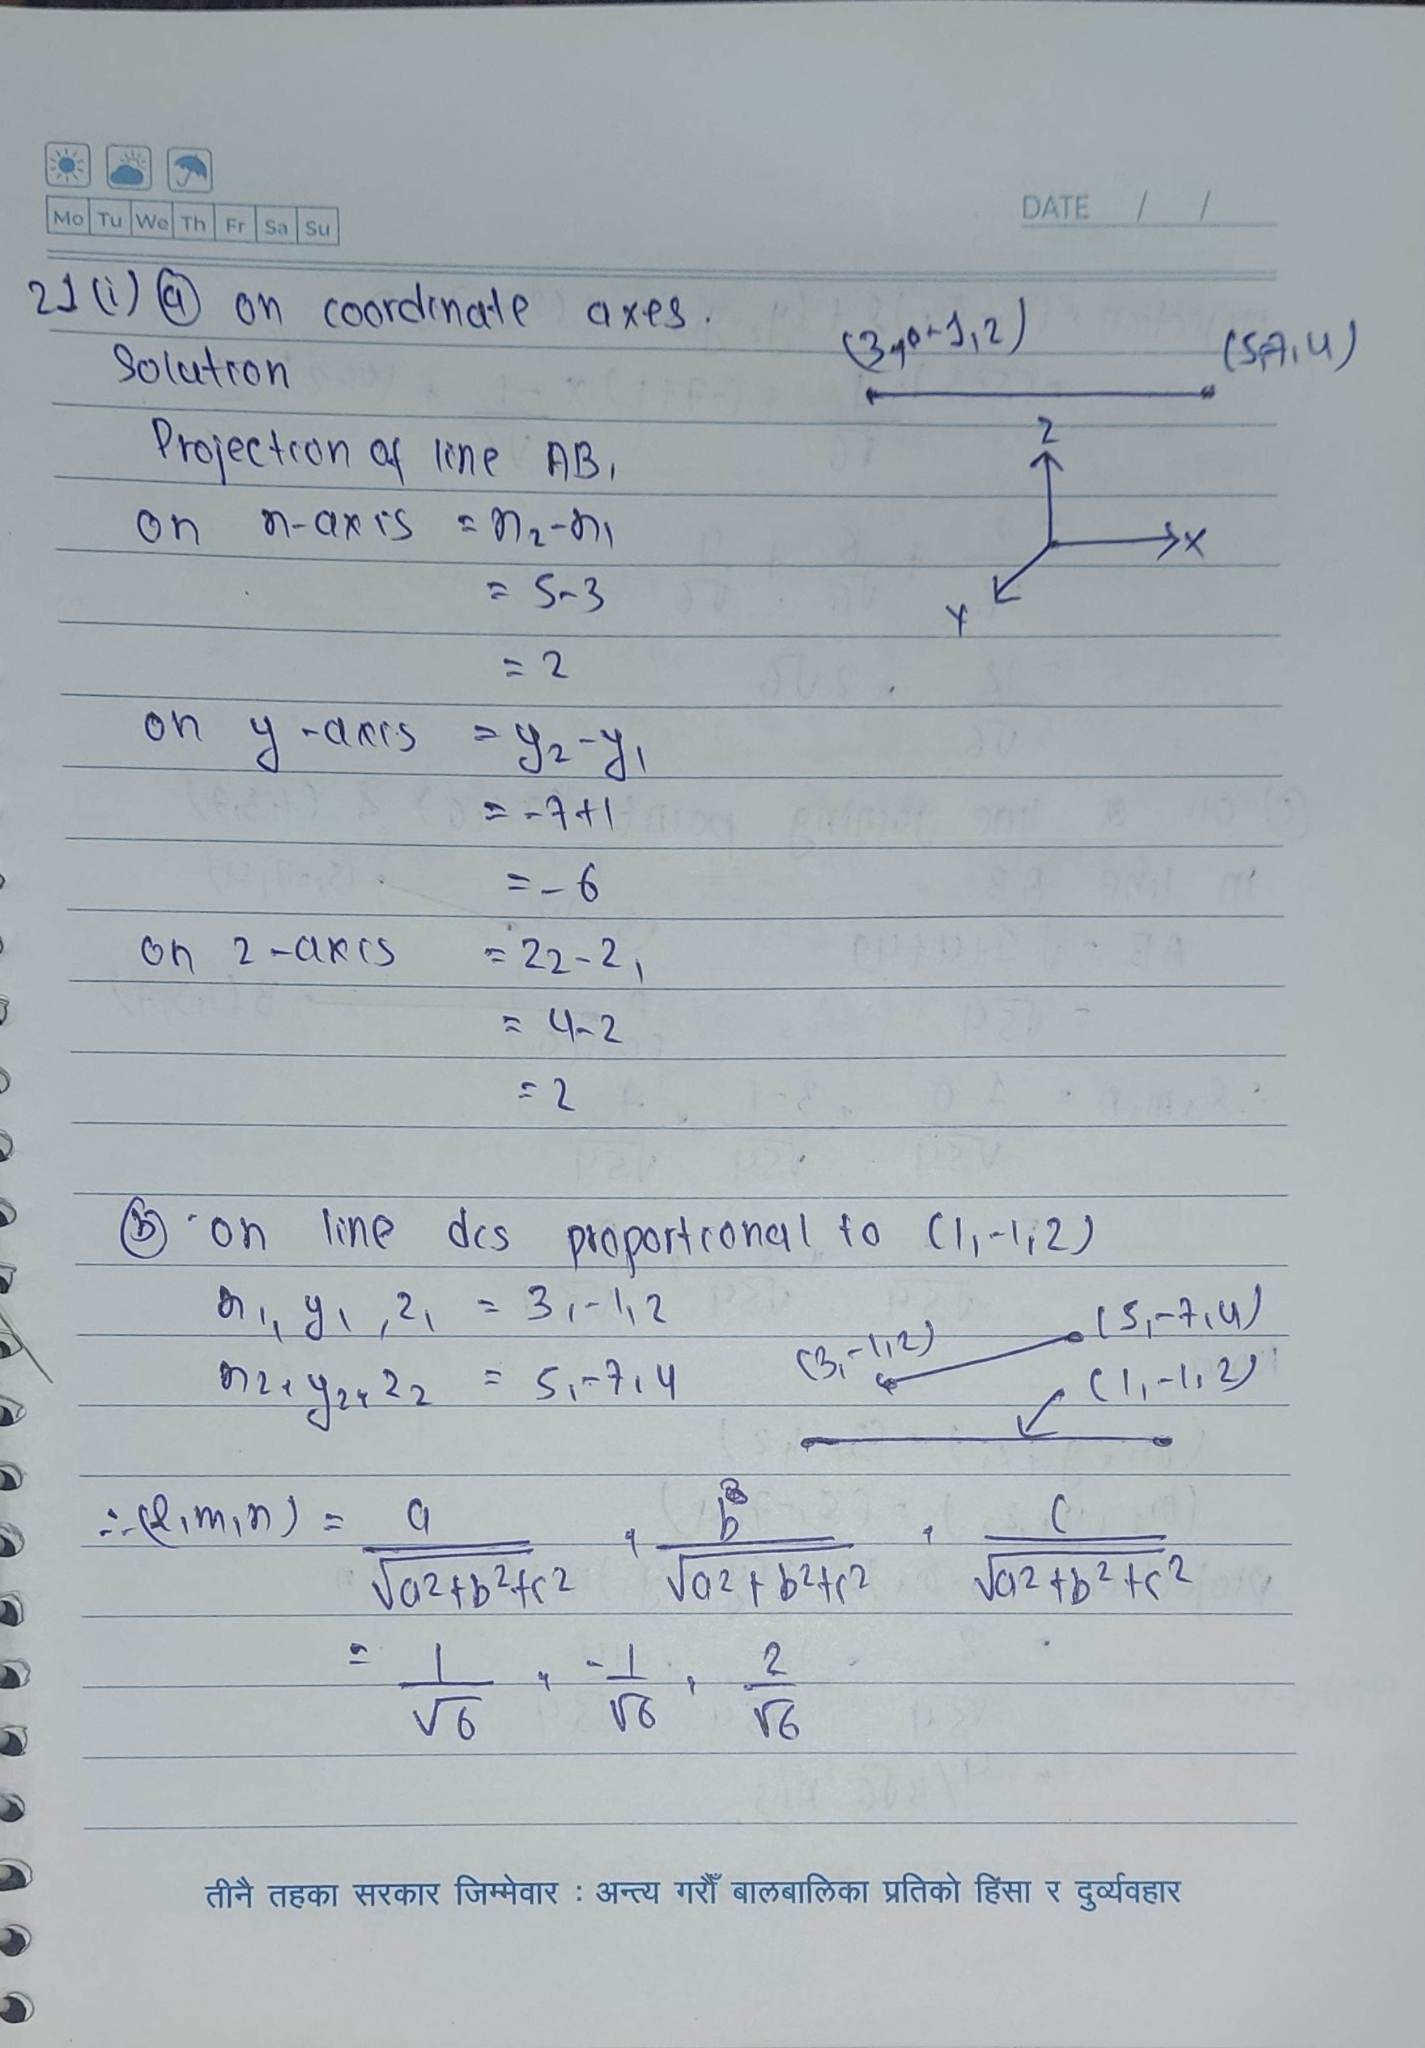 Mo Tu We Th Fr Sa Su
DATE / /
21 (i) (a) on coordinate axes.
(3, -1, 2)
(5, 7, 4)
Solution
Projection of line AB,
Z
X
Y
on x-axis = x2 - x1
= 5-3
= 2
on y-axis = y2 - y1
= -7+1
= -6
on z-axis = z2 - z1
= 4-2
= 2
(b) on line dcs proportional to (1, -1, 2)
x1, y1, z1 = 3, -1, 2
(3, -1, 2)
(5, -7, 4)
x2, y2, z2 = 5, -7, 4
(1, -1, 2)
∴ (l, m, n) = a/√a²+b²+c² , b/√a²+b²+c² , c/√a²+b²+c²
= 1/√6 , -1/√6 , 2/√6
तीनै तहका सरकार जिम्मेवार : अन्त्य गरौँ बालबालिका प्रतिको हिंसा र दुर्व्यवहार